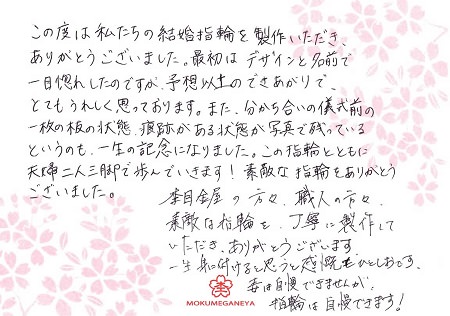 この度は私たちの結婚指輪を製作いただき、
ありがとうございました。最初はデザインと名前で
一目惚れしたのですが、予想以上のできあがりで、
とてもうれしく思っております。また、分かち合いの儀式前の
一枚の板の状態、痕跡がある状態が写真で残っている
というのも、一生の記念になりました。この指輪とともに
夫婦二人三脚で歩んでいきます！素敵な指輪をありがとう
ございました。
杢目金屋の方々、職人の方々、
素敵な指輪を、丁寧に製作して
いただき、ありがとうございます。
一生身に付けると思うと感慨もひとしおです。
妻は自慢できませんが、
指輪は自慢できます！
MOKUMEGANEYA